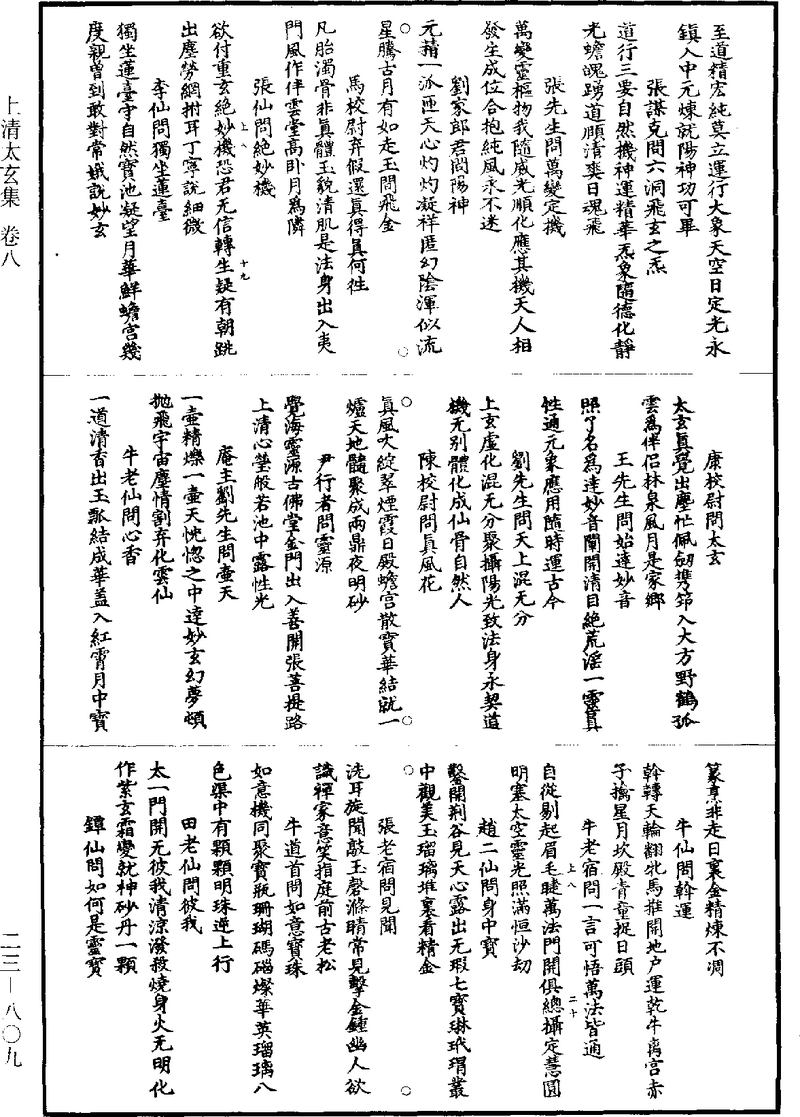 至道精宏純莫立運行大象天空日定光永
鎮入中元煉就陽神功可畢
張謀克問六洞飛玄之炁
道行三要自然機神運精華炁象隨德化靜
光蟾魄踴道順清爽日魂飛
張先生問萬變定機
萬變靈樞物我隨感光順化應其機天人相
發生成位合抱純風永不迷
劉家郎君問陽神
元藉一派匝天心灼灼凝祥匿幻陰渾似流
星騰古月有如走玉問飛金
馬校尉弃假還真得員何往
凡胎濁骨非真體玉貌清肌是法身出入夷
門風作伴雲堂高卧月為隣
張仙問絕妙機
欲付重玄絕妙機恐君无信轉生疑有朝跳
出塵勞網拊耳丁寧說細微
李仙問獨坐蓮臺
獨坐蓮臺守自然寶池凝望月華鮮蟾宮幾
度親曾到敢對常娥說妙玄
康校尉問太玄
太玄真覺出塵忙佩劒携筇入大方野鶴孤
雲為伴侣林泉風月是家鄉
王先生問始達妙音
照了名為達妙音闡開清目絕荒滛一靈真
性通元象應用隨時運古今
劉先生問天上混无分
上玄虛化混无分聚攝陽光致法身永契道
機无別體化成仙骨自然人
陳校尉問真風花
真風大綻翠煙霞日殿蟾宮散寶華結就一
爐天地髓聚成兩鼎夜明砂
尹行者問靈源
覺海靈源古佛堂金門出入善開張菩提路
上清心瑩般若池中露性光
庵主劉先生問壺天
一壺精爍一壺天恍惚之中達妙玄幻夢頓
拋飛宇宙塵情割弃化雲仙
牛老仙問心香
一道清香出玉瓢結成華盖入紅霄月中寶
篆烹非走日裏金精煉不凋
牛仙問斡運
斡轉天輪翻牝馬推開地户運乾牛离宮赤
子擒星月坎殿青童捉日頭
牛老宿問一言可悟萬法皆通
自從剔起眉毛䀹萬法門開俱總攝定慧圓
明塞太空靈光照滿恒沙劫
趙二仙問身中寶
鑿開荊谷見天心露出无瑕七寶琳玳瑁叢
中觀美玉瑠璃堆裏看精金
張老宿問見聞
洗耳旋聞敲玉磬滌睛常見擊金鍾幽人欲
識禪家意笑指庭前古老松
牛道首問如意寶珠
如意機同聚寶瓶珊瑚碼碯燦華英瑠璃八
色渠中有顆顆明珠逆上行
田老仙問彼我
太一門開无彼我清凉潑救燒身火无明化
作紫玄霜變就神砂丹一顆
鐔仙問如何是靈寶
上八
十九
上八
二十
上清太玄集 卷八
二三—八〇九